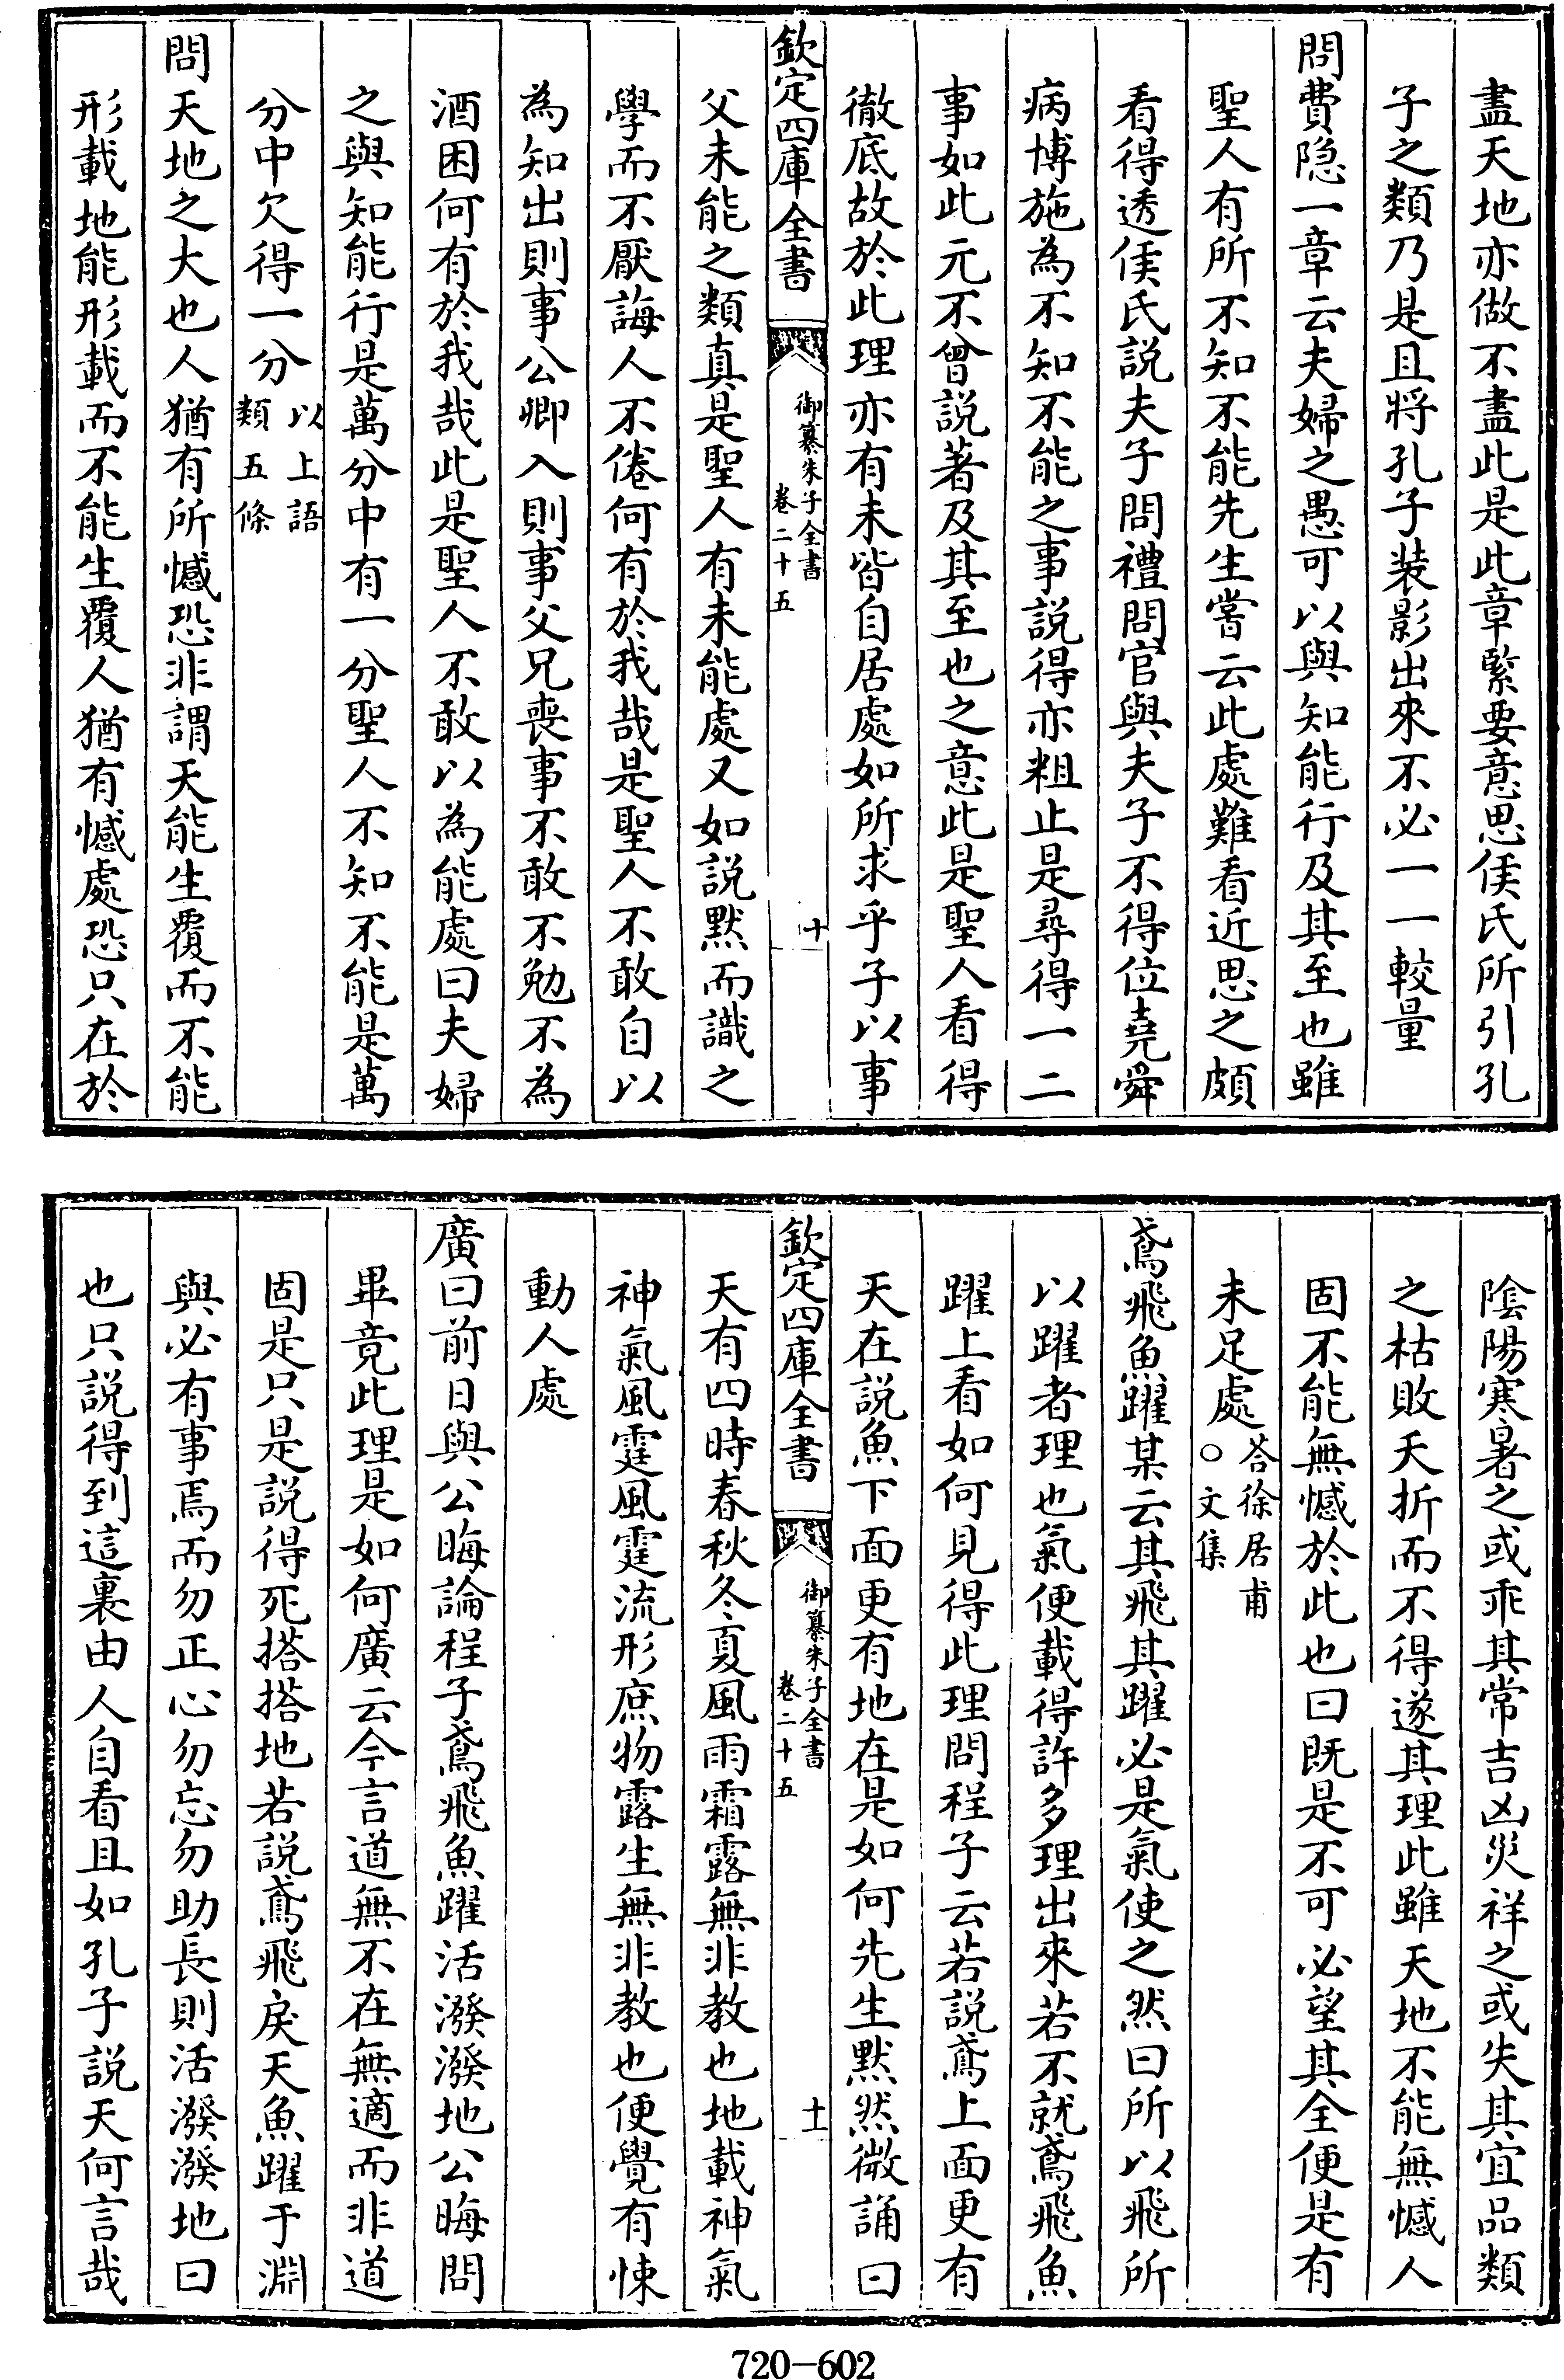 盡天地亦做不盡此是此章緊要意思侯氏所引孔
子之類乃是且將孔子装影出來不必一一較量
問費隐一章云夫婦之愚可以與知能行及其至也雖
聖人有所不知不能先生嘗云此處難看近思之頗
看得透侯氏說夫子問禮問官與夫子不得位堯舜
病博施為不知不能之事說得亦粗止是尋得一二
事如此元不曾說著及其至也之意此是聖人看得
徹底故於此理亦有未皆自居處如所求乎子以事
欽定四庫全書
御纂朱子全書
卷二十五
十
父未能之類真是聖人有未能處又如說默而識之
學而不厭誨人不倦何有於我哉是聖人不敢自以
為知出則事公卿入則事父兄喪事不敢不勉不為
酒困何有於我哉此是聖人不敢以為能處曰夫婦
之與知能行是萬分中有一分聖人不知不能是萬
分中欠得一分以上語類五條
問天地之大也人猶有所憾恐非謂天能生覆而不能
形載地能形載而不能生覆人猶有憾處恐只在於
陰陽寒暑之或乖其常吉凶災祥之或失其宜品類
之枯敗夭折而不得遂其理此雖天地不能無憾人
固不能無憾於此也曰既是不可必望其全便是有
未足處答徐居甫○文集
鳶飛魚躍某云其飛其躍必是氣使之然曰所以飛所
以躍者理也氣便載得許多理出來若不就鳶飛魚
躍上看如何見得此理問程子云若說鳶上面更有
天在說魚下面更有地在是如何先生默然微誦曰
欽定四庫全書
御纂朱子全書
卷二十五
十一
天有四時春秋冬夏風雨霜露無非教也地載神氣
神氣風霆風霆流形庶物露生無非教也便覺有悚
動人處
廣曰前日與公晦論程子鳶飛魚躍活潑潑地公晦問
畢竟此理是如何廣云今言道無不在無適而非道
固是只是說得死搭搭地若說鳶飛戾天魚躍于淵
與必有事焉而勿正心勿忘勿助長則活潑潑地曰
也只說得到這裏由人自看且如孔子說天何言哉
720-602